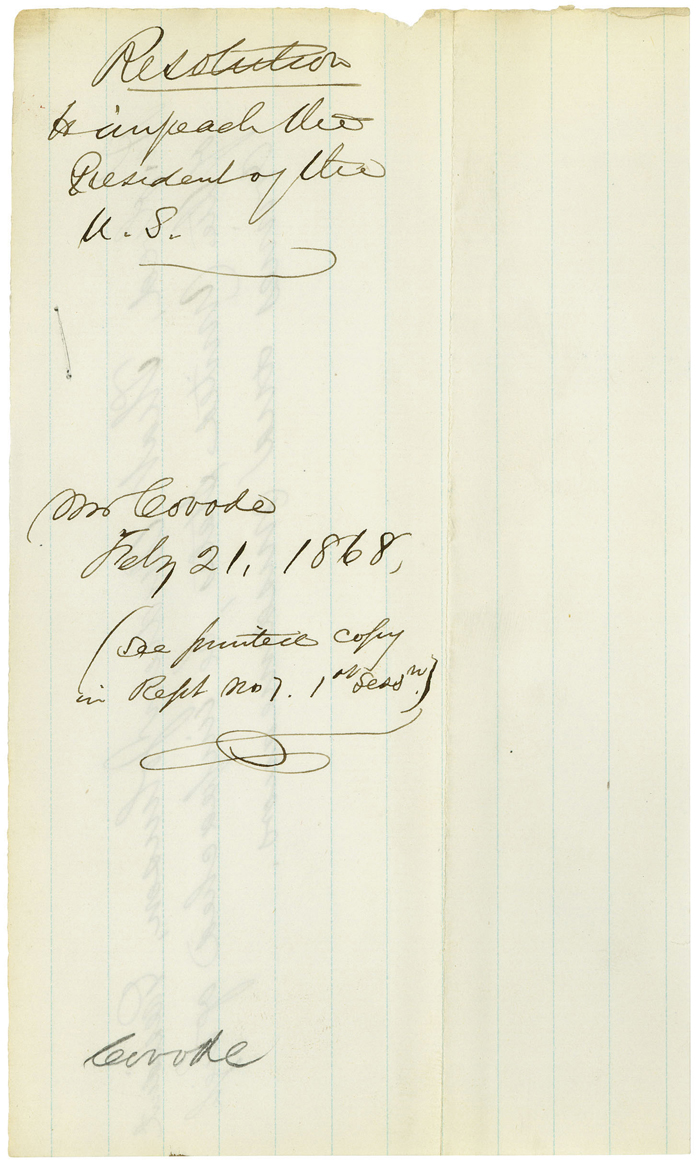 Resolution
to impeach the
President of the
U. S.
Mr Covode
Feby 21, 1868,
(See printed copy
in Rept no 7. 1st Sessn.)
Covode